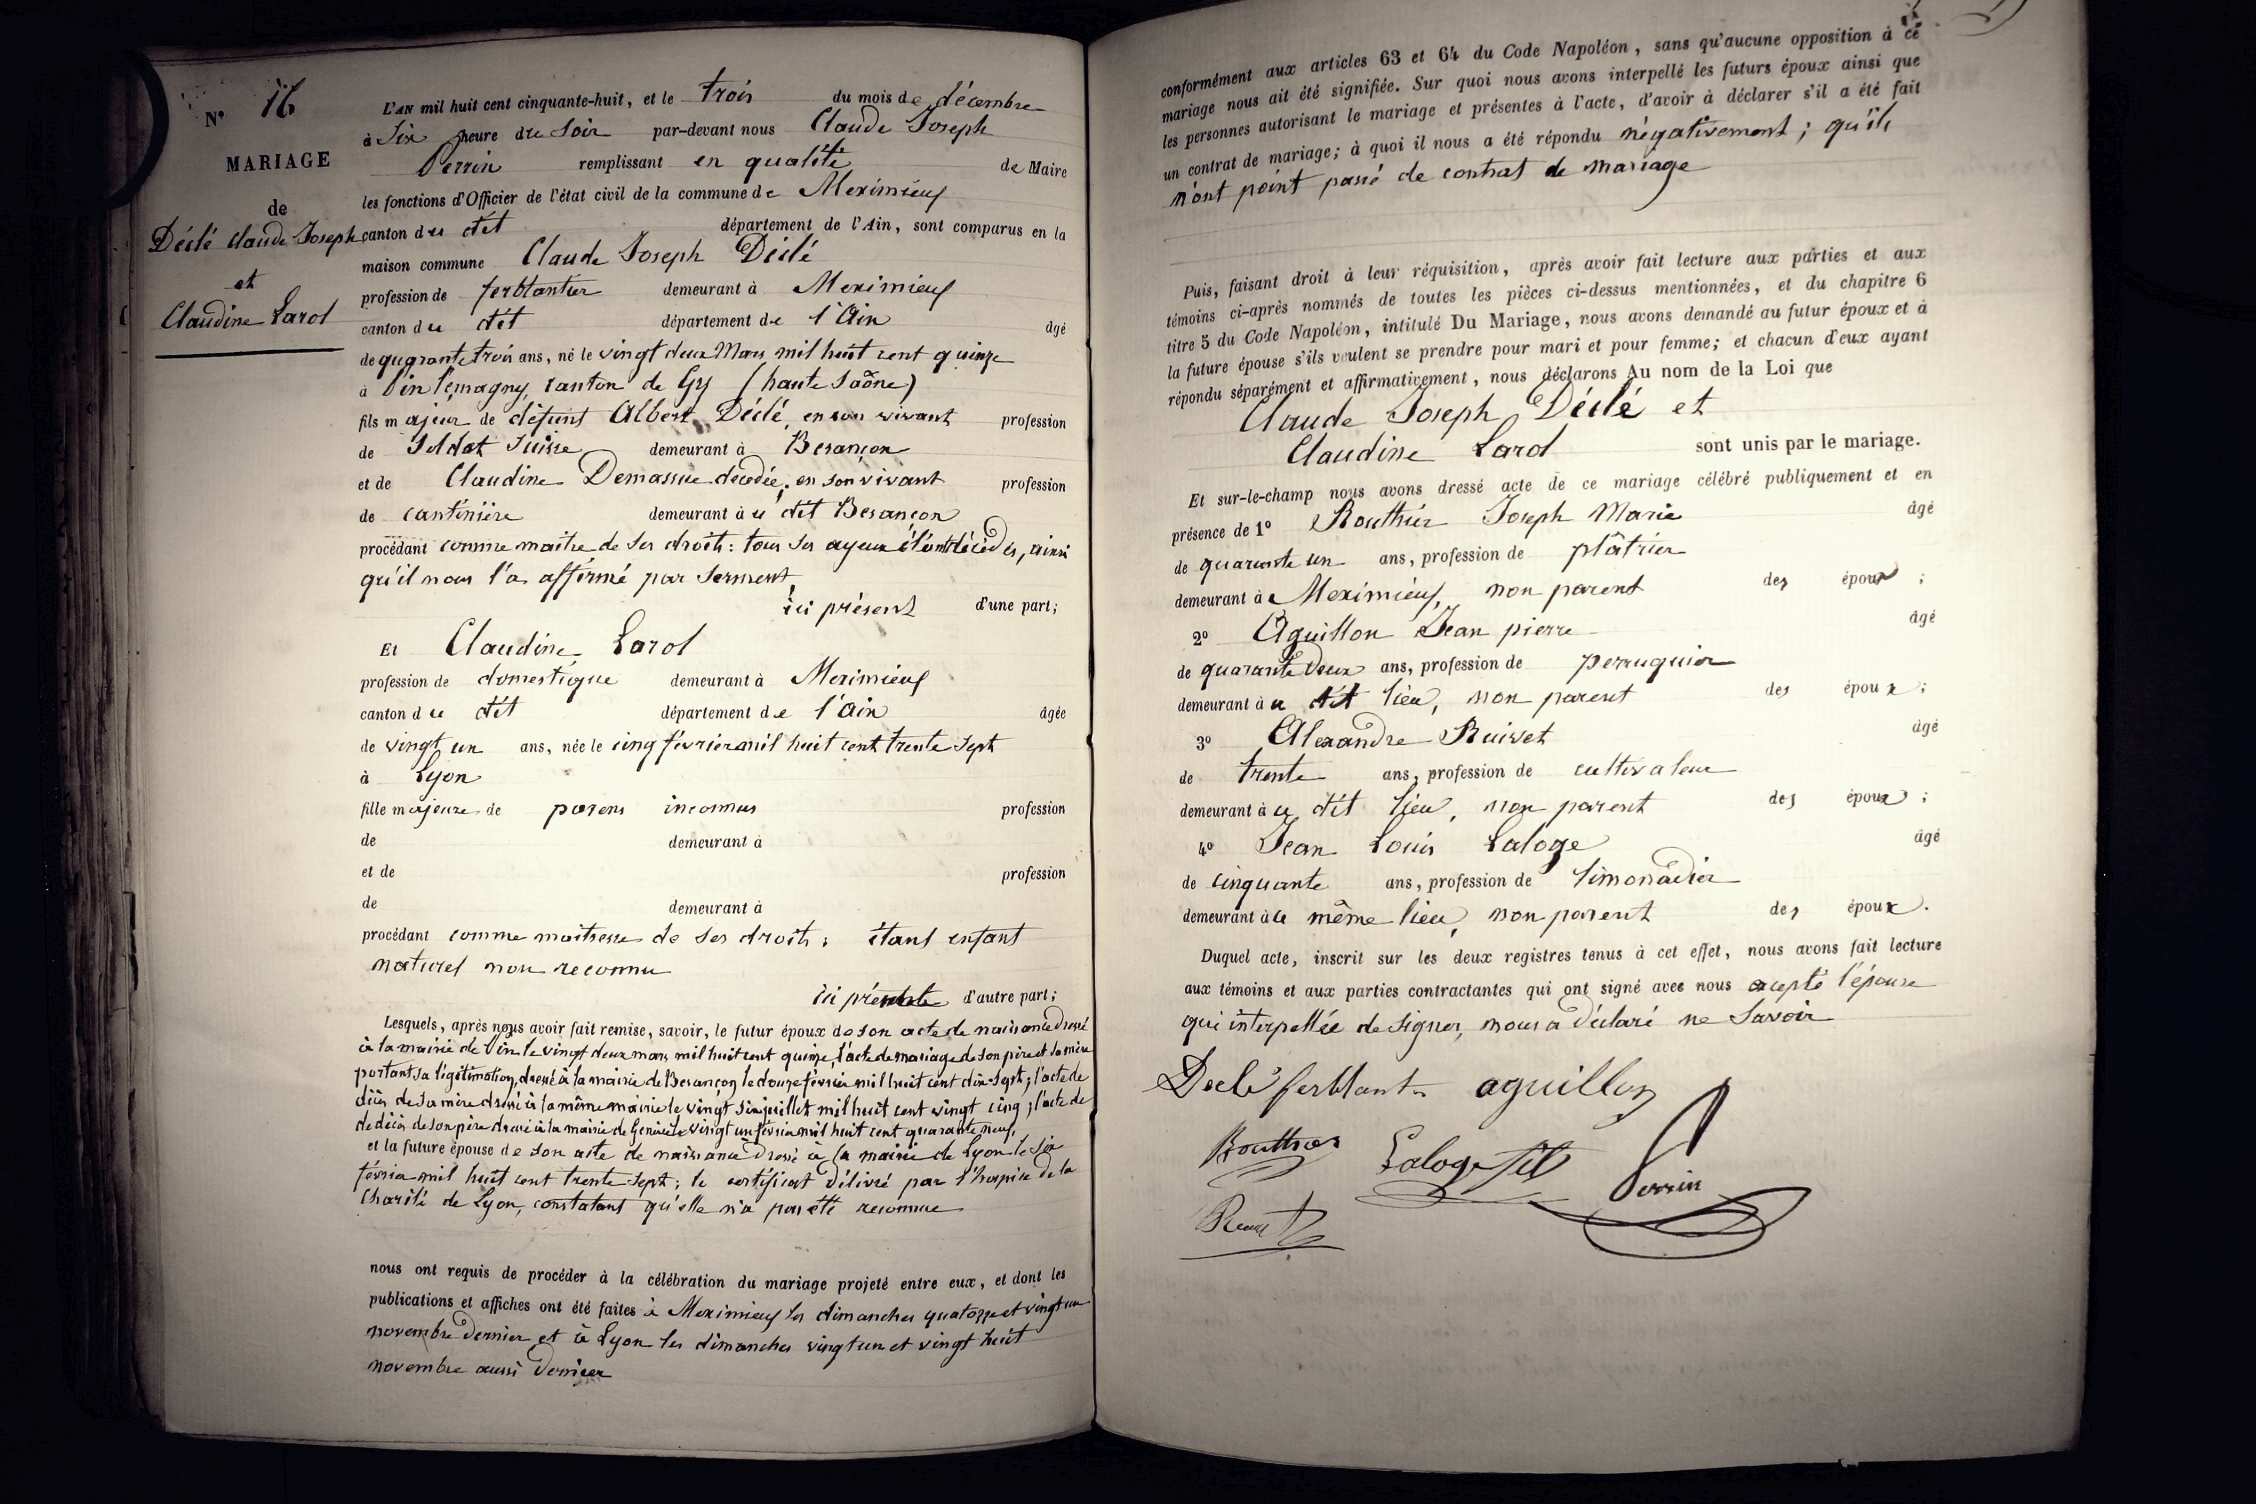 N° 16
MARIAGE
de
Déclé Claude Joseph
et
Claudine Larol
L'AN mil huit cent cinquante-huit, et le trois du mois de décembre
à six heure du soir par-devant nous Claude Joseph
Perrin remplissant en qualité de Maire
les fonctions d'Officier de l'état civil de la commune de Meximieux
canton du dit département de l'Ain, sont comparus en la
maison commune Claude Joseph Déclé
profession de ferblantier demeurant à Meximieux
canton du dit département de l'Ain âgé
de quarante trois ans, né le vingt deux Mars mil huit cent quinze
à canton de Gy (haute Saône)
fils majeur de défunt Albert Déclé, en son vivant profession
de Soldat Suisse demeurant à Besançon
et de Claudine décédée, en son vivant profession
de cantinière demeurant à u dit Besançon
procédant comme maître de ses droits : tous ses ayeux étant décédés, ainsi
qu'il nous l'a affirmé par serment,
ici présent d'une part;
Et Claudine Larol
profession de domestique demeurant à Meximieux
canton du dit département de l'Ain âgée
de vingt un ans, née le cinq février mil huit cent trente sept
à Lyon
fille majeure de parens inconnus profession
de demeurant à
et de profession
de demeurant à
procédant comme maîtresse de ses droits ; étant enfant
naturel non reconnu
ici présente d'autre part;
Lesquels, après nous avoir fait remise, savoir, le futur époux de son acte de naissance dressé
à la mairie de Vin le vingt deux mars mil huit cent quinze, l'acte de mariage de son père et sa mère
portant sa légitimation, dressé à la mairie de Besançon le douze février mil huit cent dix-sept; l'acte de
décès de sa mère dressé à la même mairie le vingt six juillet mil huit cent vingt cinq; l'acte de
de décès de son père dressé à la mairie de vingt un février mil huit cent quarante neuf,
et la future épouse de son acte de naissance dressé à la mairie de Lyon le six
février mil huit cent trente sept; le certificat délivré par l'hospice de la
Charité de Lyon, constatant qu'elle n'a pas été reconnue
nous ont requis de procéder à la célébration du mariage projeté entre eux, et dont les
publications et affiches ont été faites à Meximieux les dimanches quatorze et vingt un
novembre dernier et à Lyon les dimanches vingt un et vingt huit
novembre aussi dernier
conformément aux articles 63 et 64 du Code Napoléon, sans qu'aucune opposition à ce
mariage nous ait été signifiée. Sur quoi nous avons interpellé les futurs époux ainsi que
les personnes autorisant le mariage et présentes à l'acte, d'avoir à déclarer s'il a été fait
un contrat de mariage; à quoi il nous a été répondu négativement; qu'ils
n'ont point passé de contrat de mariage
Puis, faisant droit à leur réquisition, après avoir fait lecture aux parties et aux
témoins ci-après nommés de toutes les pièces ci-dessus mentionnées, et du chapitre 6
titre 5 du Code Napoléon, intitulé Du Mariage, nous avons demandé au futur époux et à
la future épouse s'ils veulent se prendre pour mari et pour femme; et chacun d'eux ayant
répondu séparément et affirmativement, nous déclarons Au nom de la Loi que
Claude Joseph Déclé et
Claudine Larol sont unis par le mariage.
Et sur-le-champ nous avons dressé acte de ce mariage célébré publiquement et en
présence de 1° Bouthier Joseph Marie âgé
de quarante un ans, profession de plâtrier
demeurant à Meximieux, non parent des époux ;
2° Aguillon Jean pierre âgé
de quarante deux ans, profession de perruquier
demeurant à u dit lieu, non parent des époux ;
3° Alexandre Ruivet âgé
de trente ans, profession de cultivateur
demeurant à u dit lieu, non parent des époux ;
4° Jean Louis Laloge âgé
de cinquante ans, profession de limonadier
demeurant à u même lieu, non parent des époux.
Duquel acte, inscrit sur les deux registres tenus à cet effet, nous avons fait lecture
aux témoins et aux parties contractantes qui ont signé avec nous excepté l'épouse
qui interpellée de signer, nous a déclaré ne Savoir
Declé ferblantr aguillon
Bouthier Laloge Perrin